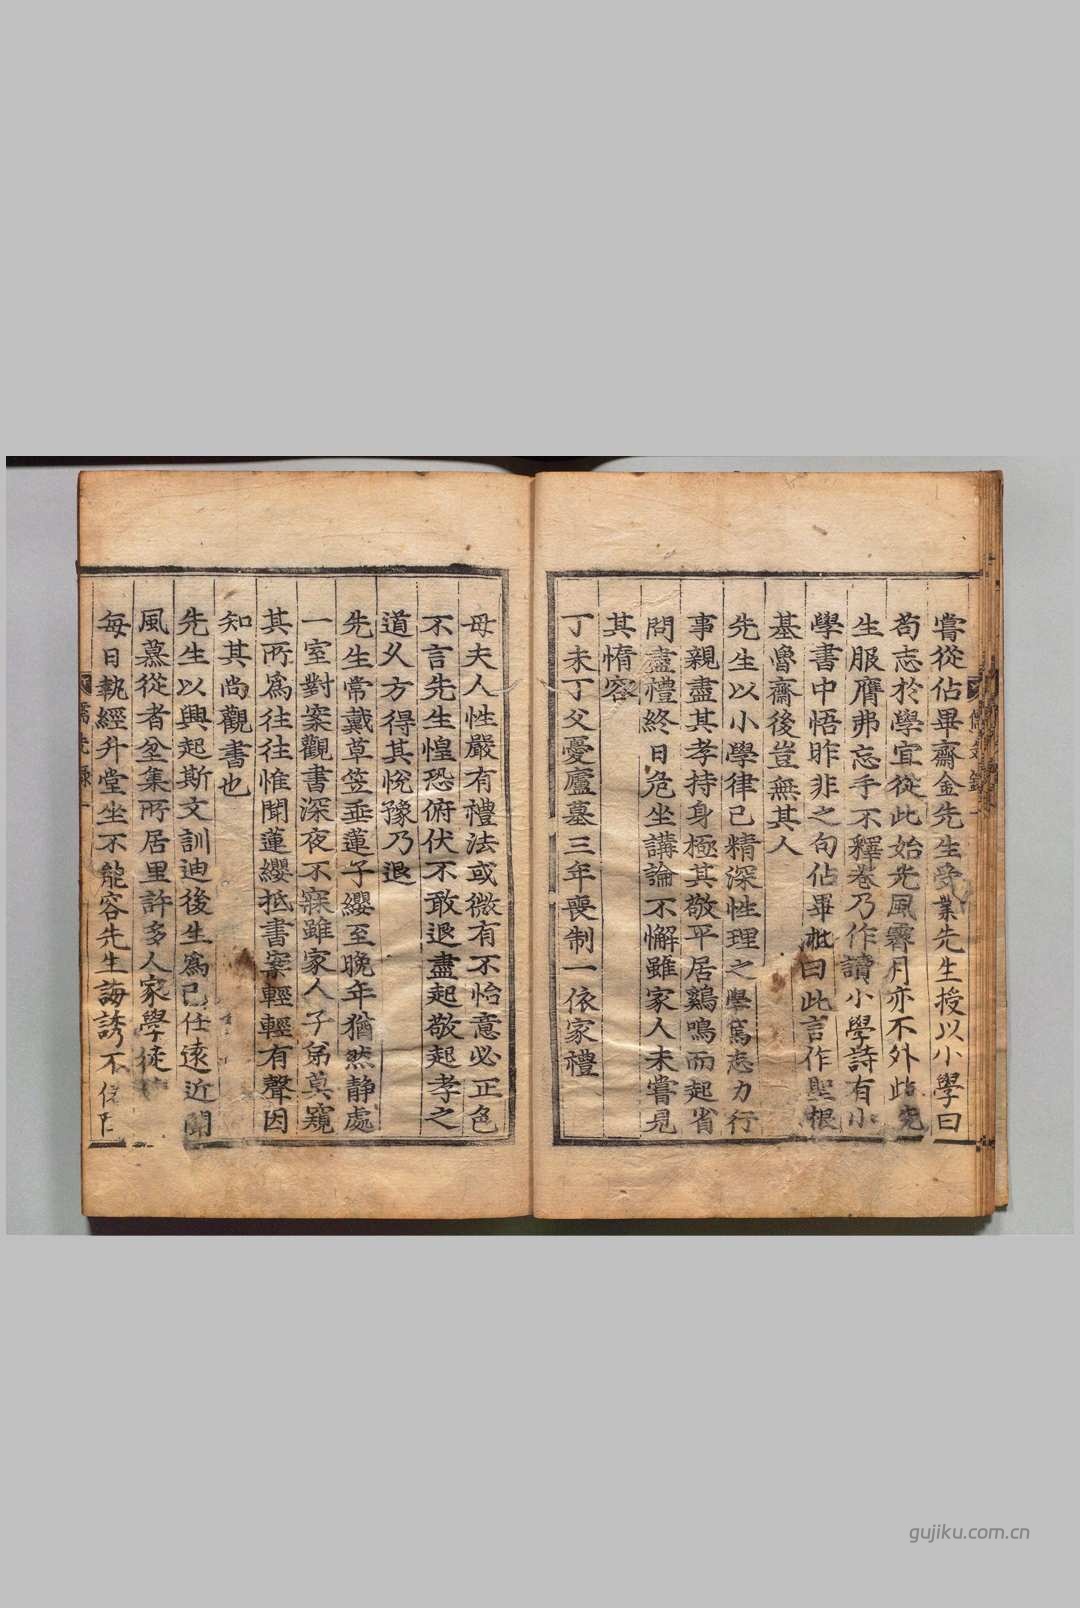 嘗從佔畢齋金先生受業先生授以小學曰
苟志於學宜從此始光風霽月亦不外此先
生服膺弗忘手不釋卷乃作讀小學詩有小
學書中悟昨非之句佔畢批曰此言作聖根
基魯齋後豈無其人
先生以小學律己精深性理之學篤志力行
事親盡其孝持身極其敬平居鷄鳴而起省
問盡禮終日危坐講論不懈雖家人未嘗見
其惰容
丁未丁父憂廬墓三年喪制一依家禮
母夫人性嚴有禮法或微有不怡意必正色
不言先生惶恐俯伏不敢退盡起敬起孝之
道久方得其悅豫乃退
先生常戴草笠垂蓮子纓至晩年猶然静處
一室對案觀書深夜不寐雖家人子弟莫窺
其所爲往往惟聞蓮纓抵書案輕輕有聲因
知其尚觀書也
先生以興起斯文訓迪後生爲己任遠近聞
風慕從者坌集所居里許多人家學徒
每日執經升堂坐不能容先生誨誘不
儒先錄一
gujiku.com.cn